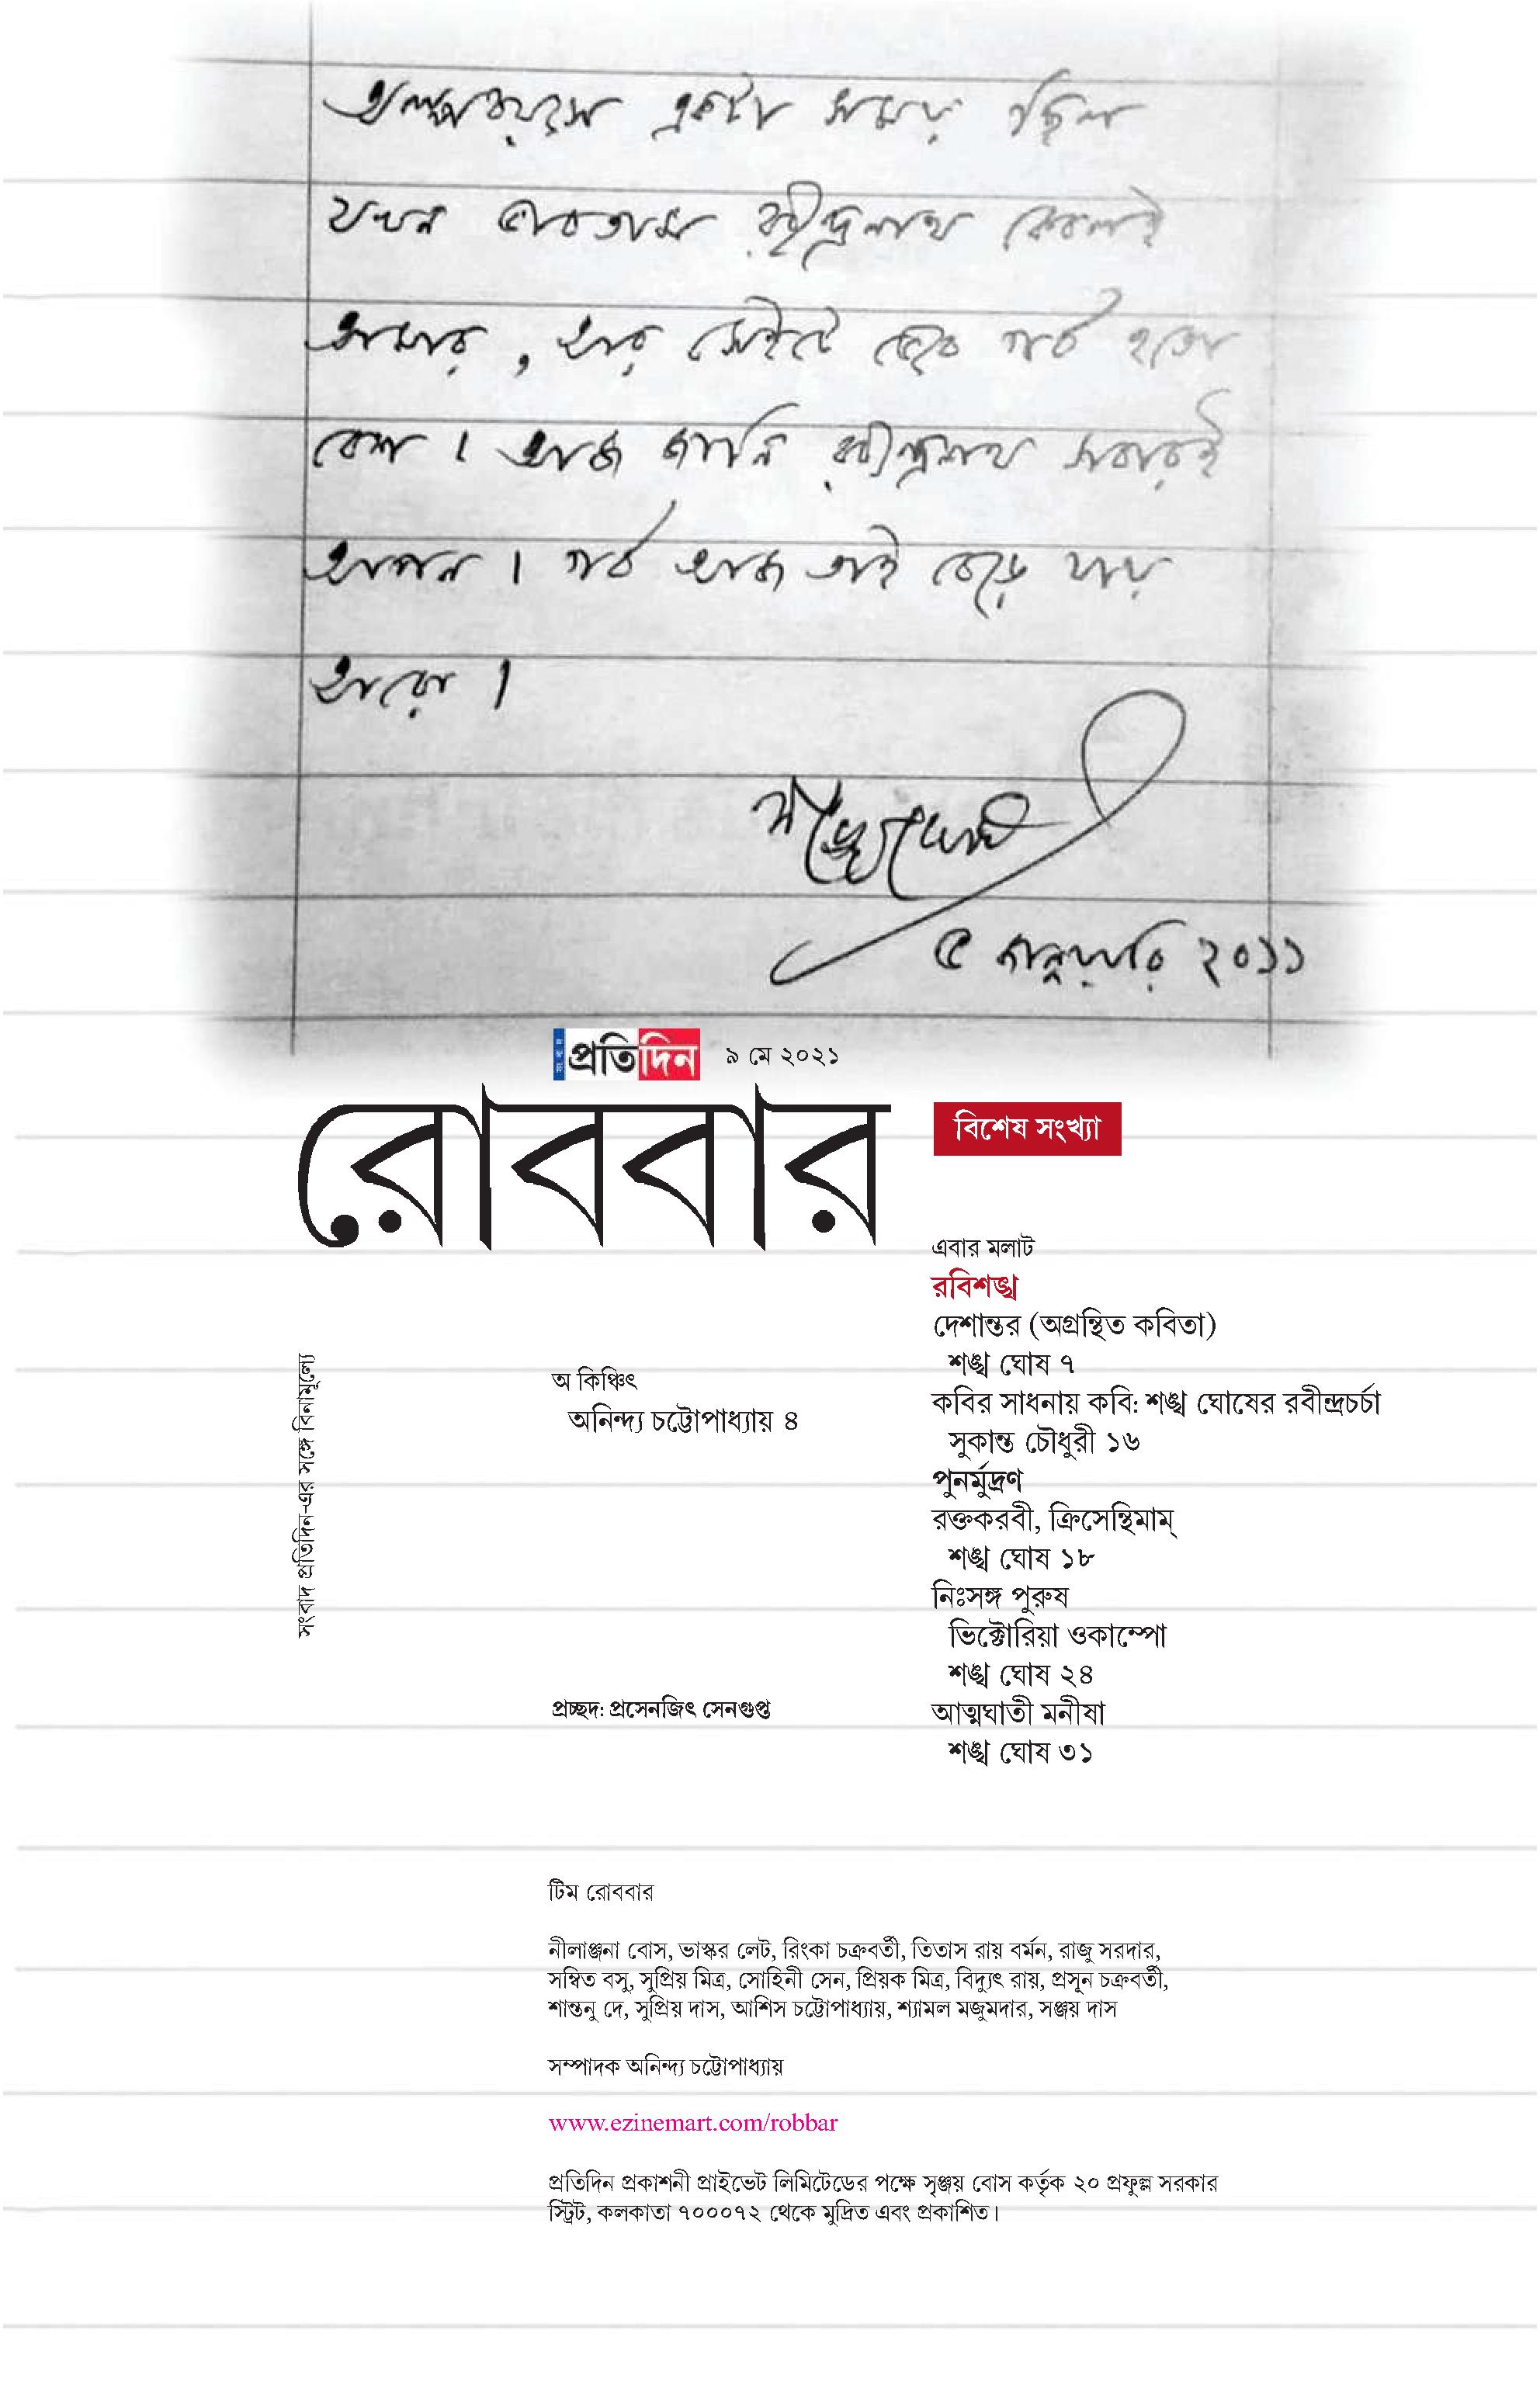 অল্পবয়সে একটা সময় ছিল
যখন ভাবতাম রবীন্দ্রনাথ কেবলই
আমার, আর সেইটে ভেবে গর্ব হতো
বেশ। আজ জানি রবীন্দ্রনাথ সবারই
আপন। গর্ব আজ তাই বেড়ে যায়
আরো।
শঙ্খ ঘোষ
৫ জানুয়ারি ২০১১
সংবাদ প্রতিদিন ৯ মে ২০২১
রোববার
বিশেষ সংখ্যা
সংবাদ প্রতিদিন-এর সঙ্গে বিনামূল্যে
অ কিঞ্চিৎ
অনিন্দ্য চট্টোপাধ্যায় ৪
প্রচ্ছদ: প্রসেনজিৎ সেনগুপ্ত
এবার মলাট
রবিশঙ্খ
দেশান্তর (অগ্রন্থিত কবিতা)
শঙ্খ ঘোষ ৭
কবির সাধনায় কবি: শঙ্খ ঘোষের রবীন্দ্রচর্চা
সুকান্ত চৌধুরী ১৬
পুনর্মুদ্রণ
রক্তকরবী, ক্রিসেন্থিমাম্
শঙ্খ ঘোষ ১৮
নিঃসঙ্গ পুরুষ
ভিক্টোরিয়া ওকাম্পো
শঙ্খ ঘোষ ২৪
আত্মঘাতী মনীষা
শঙ্খ ঘোষ ৩১
টিম রোববার
নীলাঞ্জনা বোস, ভাস্কর লেট, রিংকা চক্রবর্তী, তিতাস রায় বর্মন, রাজু সরদার,
সম্বিত বসু, সুপ্রিয় মিত্র, সোহিনী সেন, প্রিয়ক মিত্র, বিদ্যুৎ রায়, প্রসূন চক্রবর্তী,
শান্তনু দে, সুপ্রিয় দাস, আশিস চট্টোপাধ্যায়, শ্যামল মজুমদার, সঞ্জয় দাস
সম্পাদক অনিন্দ্য চট্টোপাধ্যায়
www.ezinemart.com/robbar
প্রতিদিন প্রকাশনী প্রাইভেট লিমিটেডের পক্ষে সৃঞ্জয় বোস কর্তৃক ২০ প্রফুল্ল সরকার
স্ট্রিট, কলকাতা ৭০০০৭২ থেকে মুদ্রিত এবং প্রকাশিত।